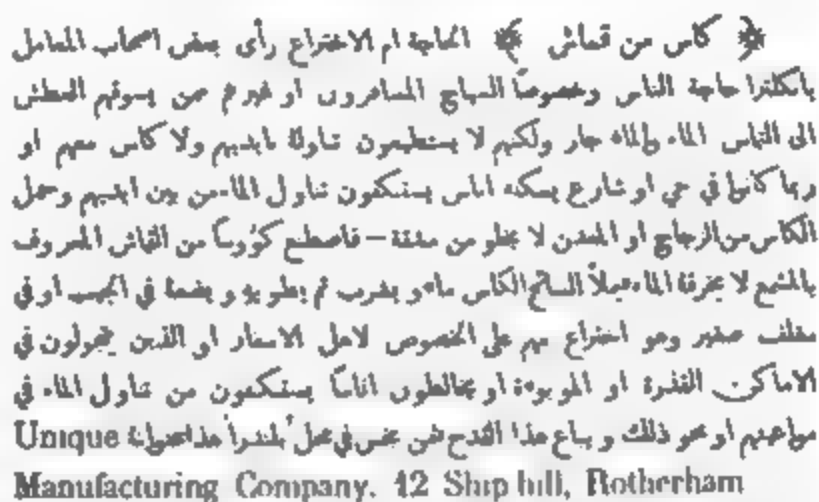 ﴿ كاس من قماش ﴾ الحاجة ام الاختراع رأى بعض اصحاب المعامل
بانكلترا حاجة الناس وخصوصاً السياح المسافرون او غيرهم ممن يسوقهم العطش
الى التماس الماء والماء جار ولكنهم لا يستطيعون تناوله بايديهم ولا كاس معهم او
ربما كانوا في حي او شارع يسكنه اناس يستنكفون تناول الماء من بين ايديهم وحمل
الكاس من الزجاج او المعدن لا يخلو من مشقة – فاصطنع كؤوساً من القماش المعروف
بالمشمع لا يخرقه الماء فيملأ السائح الكاس ماء و يشرب ثم يطويه و يضعها في الجيب او في
مغلف صغير وهو اختراع مهم على الخصوص لاهل الاسفار او الذين يتجولون في
الاماكن القذرة او الموبوءة او يخالطون اناساً يستنكفون من تناول الماء في
مواعينهم او نحو ذلك و يباع هذا القدح بثمن بخس في محل بلندرا هذا عنوانه Unique
Manufacturing Company. 12 Ship hill, Rotherham